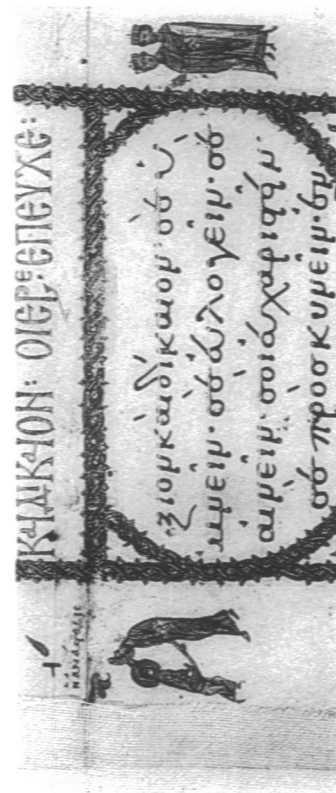 ΚΑΙ ΔΙΚΑΙΟΝ: Ο ΙΕΡΕ: ΕΠΕΥΧΕ:
ξιον καὶ δίκαιον· σὲ ὑ
μνεῖν· σὲ εὐλογεῖν· σὲ
αἰνεῖν· σοὶ εὐχαριστεῖν·
σὲ προσκυνεῖν· ἐν